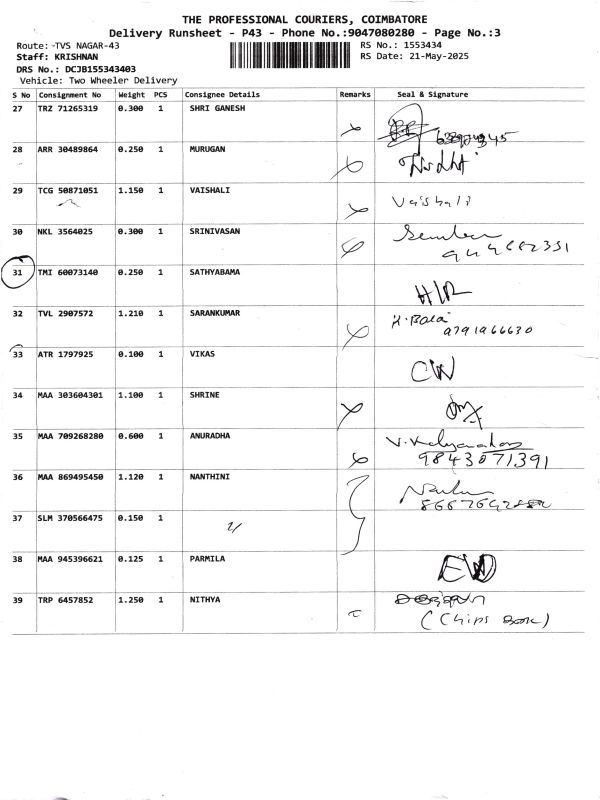 THE PROFESSIONAL COURIERS, COIMBATORE
Delivery Runsheet - P43 - Phone No.:9047080280 - Page No.:3
Route: -TVS NAGAR-43 RS No.: 1553434
Staff: KRISHNAN RS Date: 21-May-2025
DRS No.: DCJB155343403
Vehicle: Two Wheeler Delivery
S No Consignment No Weight PCS Consignee Details Remarks Seal & Signature
27 TRZ 71265319 0.300 1 SHRI GANESH
28 ARR 30489864 0.250 1 MURUGAN
29 TCG 50871051 1.150 1 VAISHALI Vaishali
30 NKL 3564025 0.300 1 SRINIVASAN
31 TMI 60073140 0.250 1 SATHYABAMA H/R
32 TVL 2907572 1.210 1 SARANKUMAR
9791966630
33 ATR 1797925 0.100 1 VIKAS CW
34 MAA 303604301 1.100 1 SHRINE
35 MAA 709268280 0.600 1 ANURADHA
9843071391
36 MAA 869495450 1.120 1 NANTHINI
37 SLM 370566475 0.150 1
38 MAA 945396621 0.125 1 PARMILA
39 TRP 6457852 1.250 1 NITHYA
(Chips